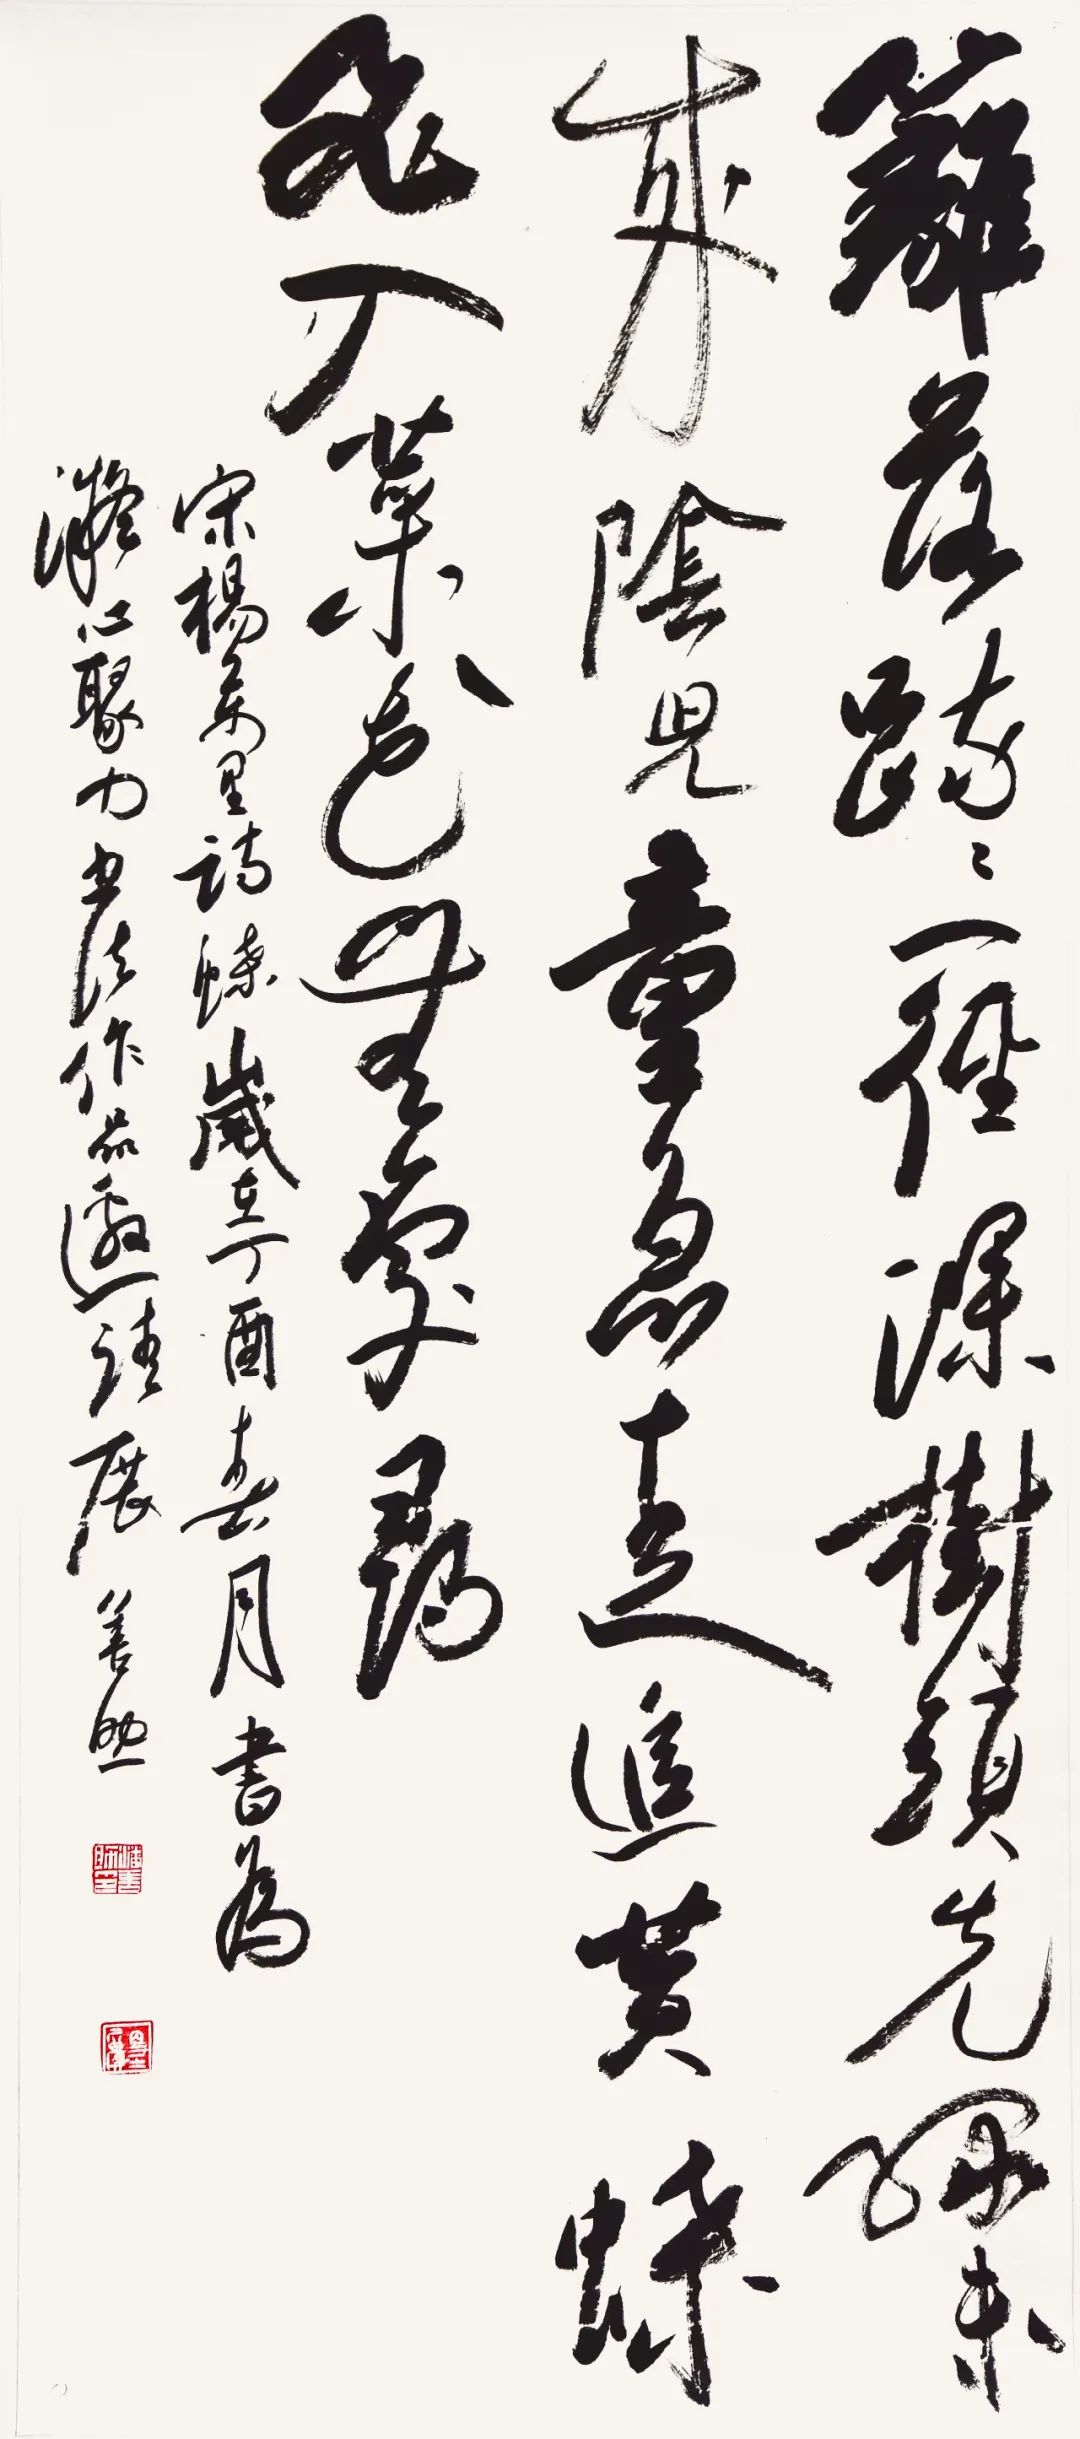 籬落踈〻一徑深樹頭先綠未
成陰兒童急走追黃蝶
飛入菜花無處尋
宋楊萬里詩蝶歲在丁酉春月書為
凝心聚力書法作品邀請展 善